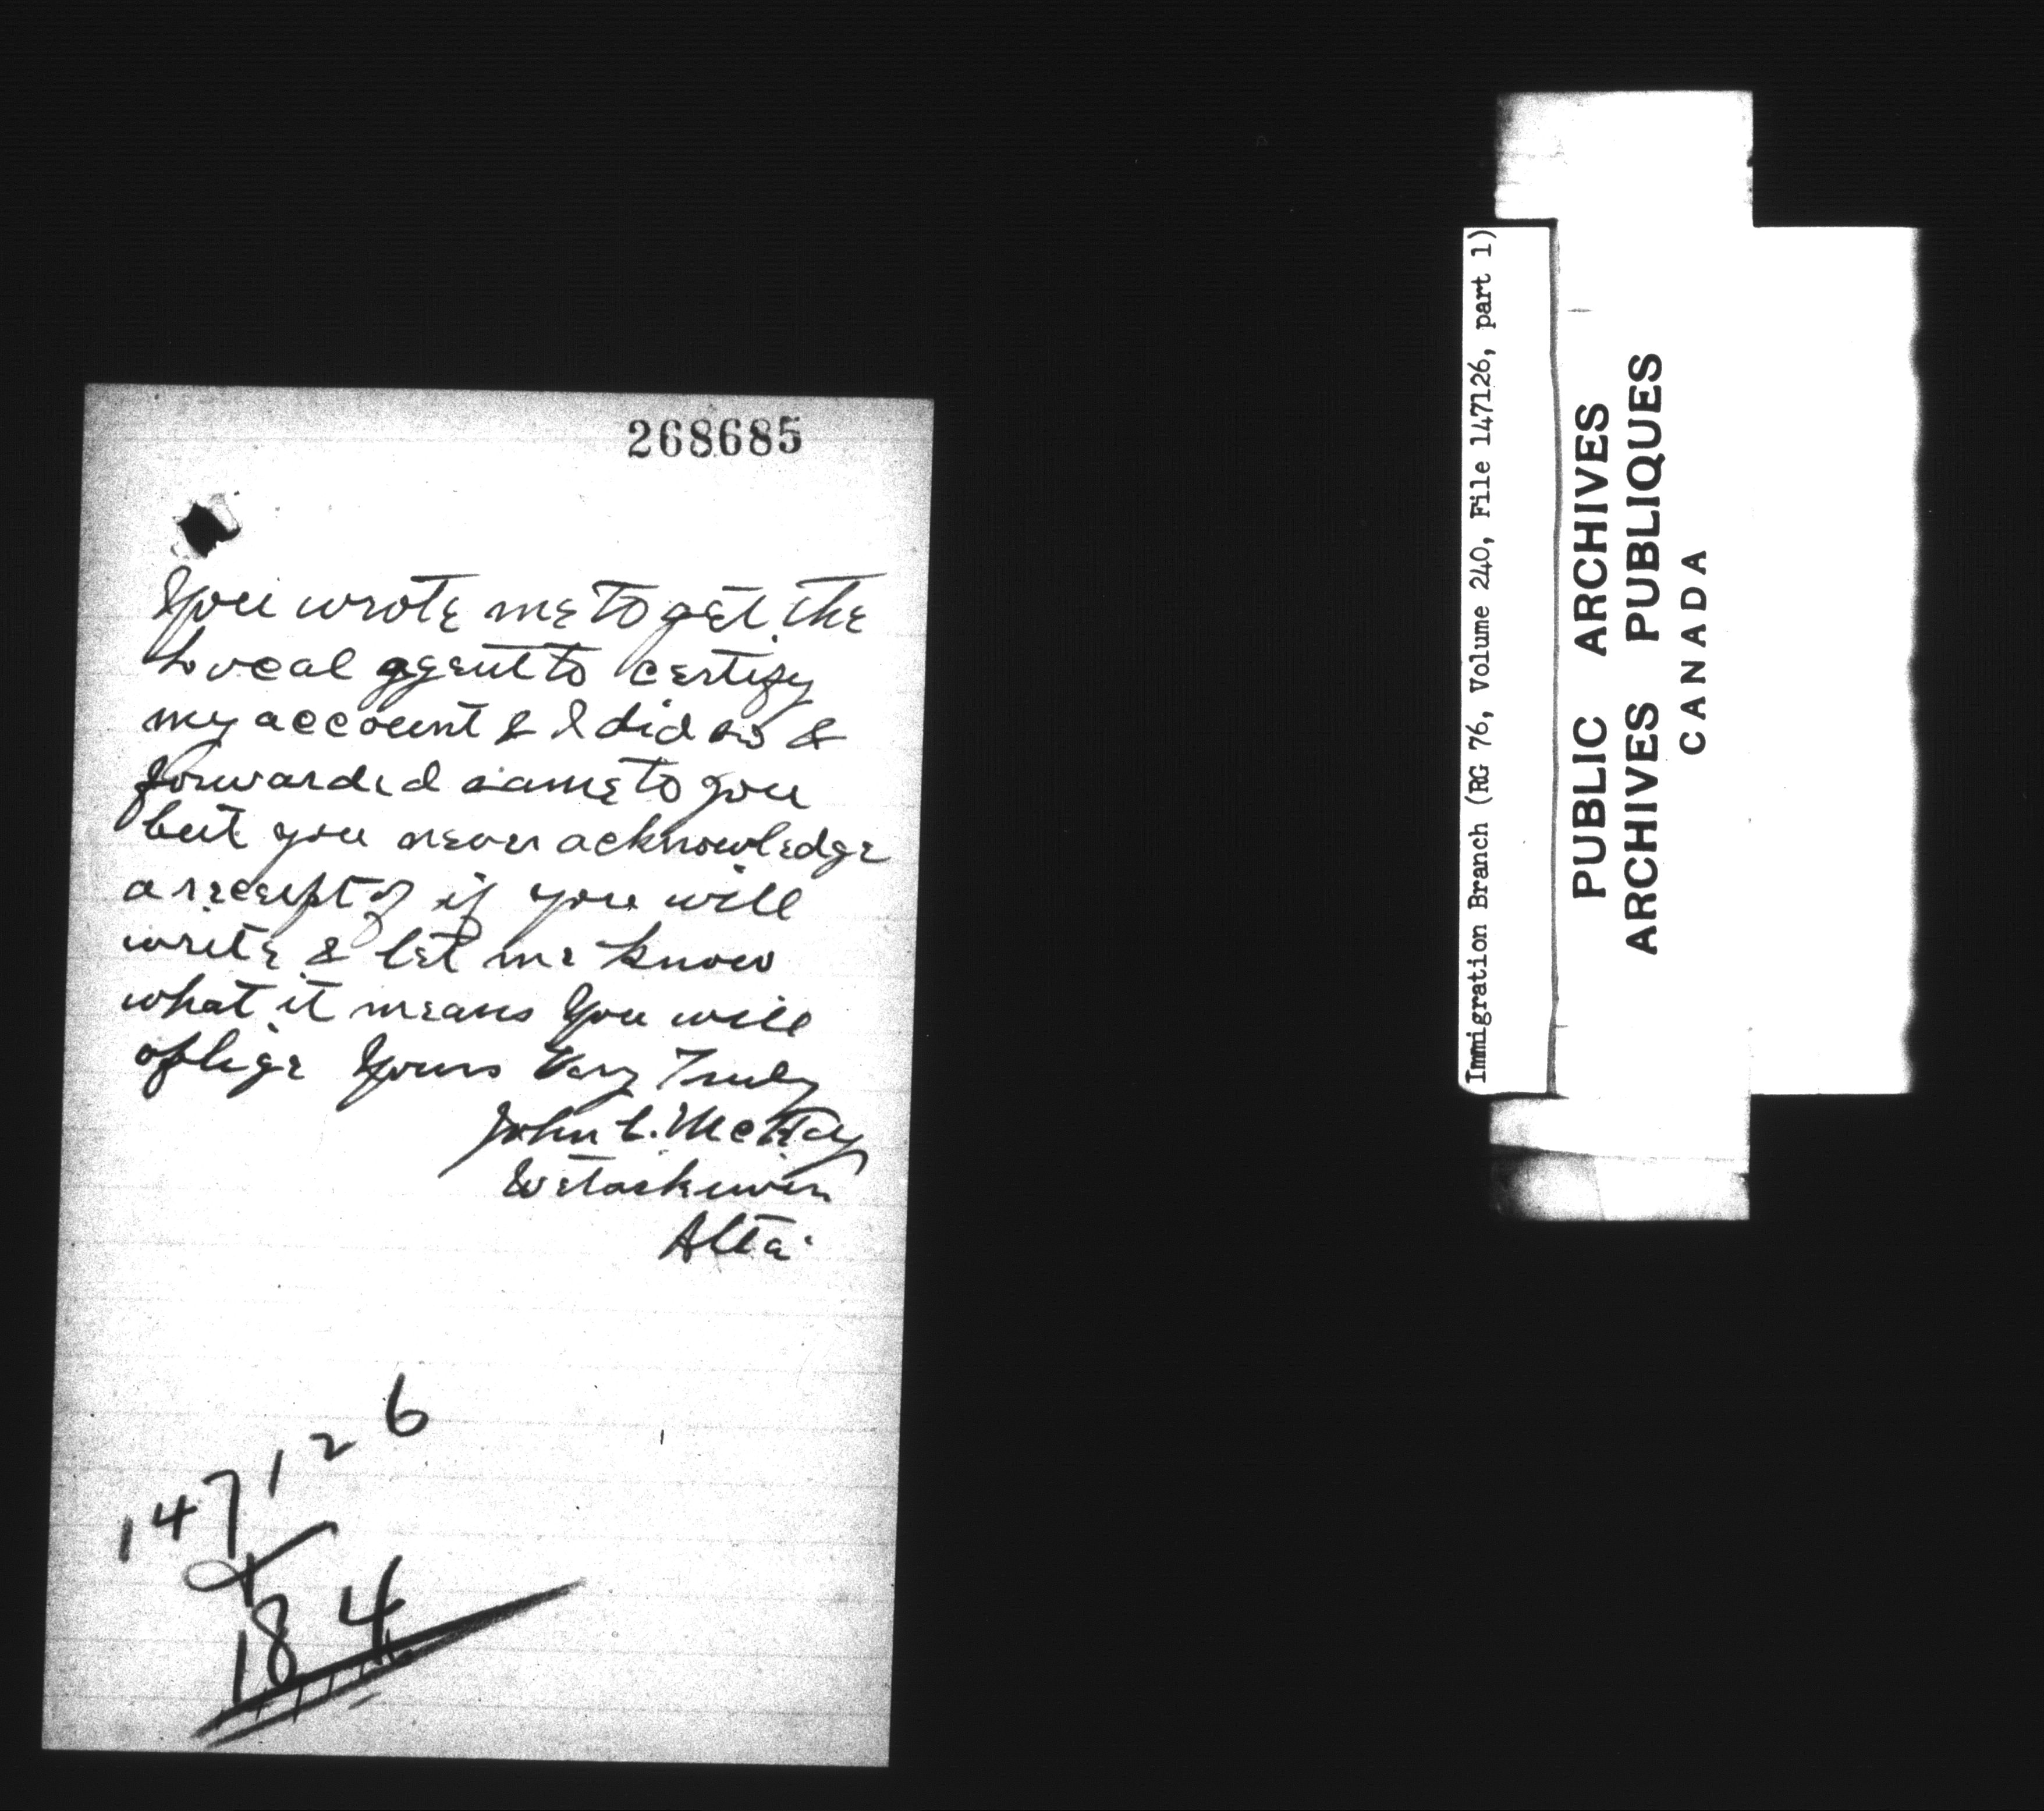 268685
You wrote me to get the
Local agent to certify
my account & I did so &
forwarded same to you
but you never acknowledge
a receipt of if you will
write & let me know
what it means You will
oblige Yours Very Truly
John C. McKay
Wetaskiwin
Alta.
147126
184
Immigration Branch (RG 76, Volume 240, File 147126, part 1)
PUBLIC ARCHIVES
ARCHIVES PUBLIQUES
CANADA